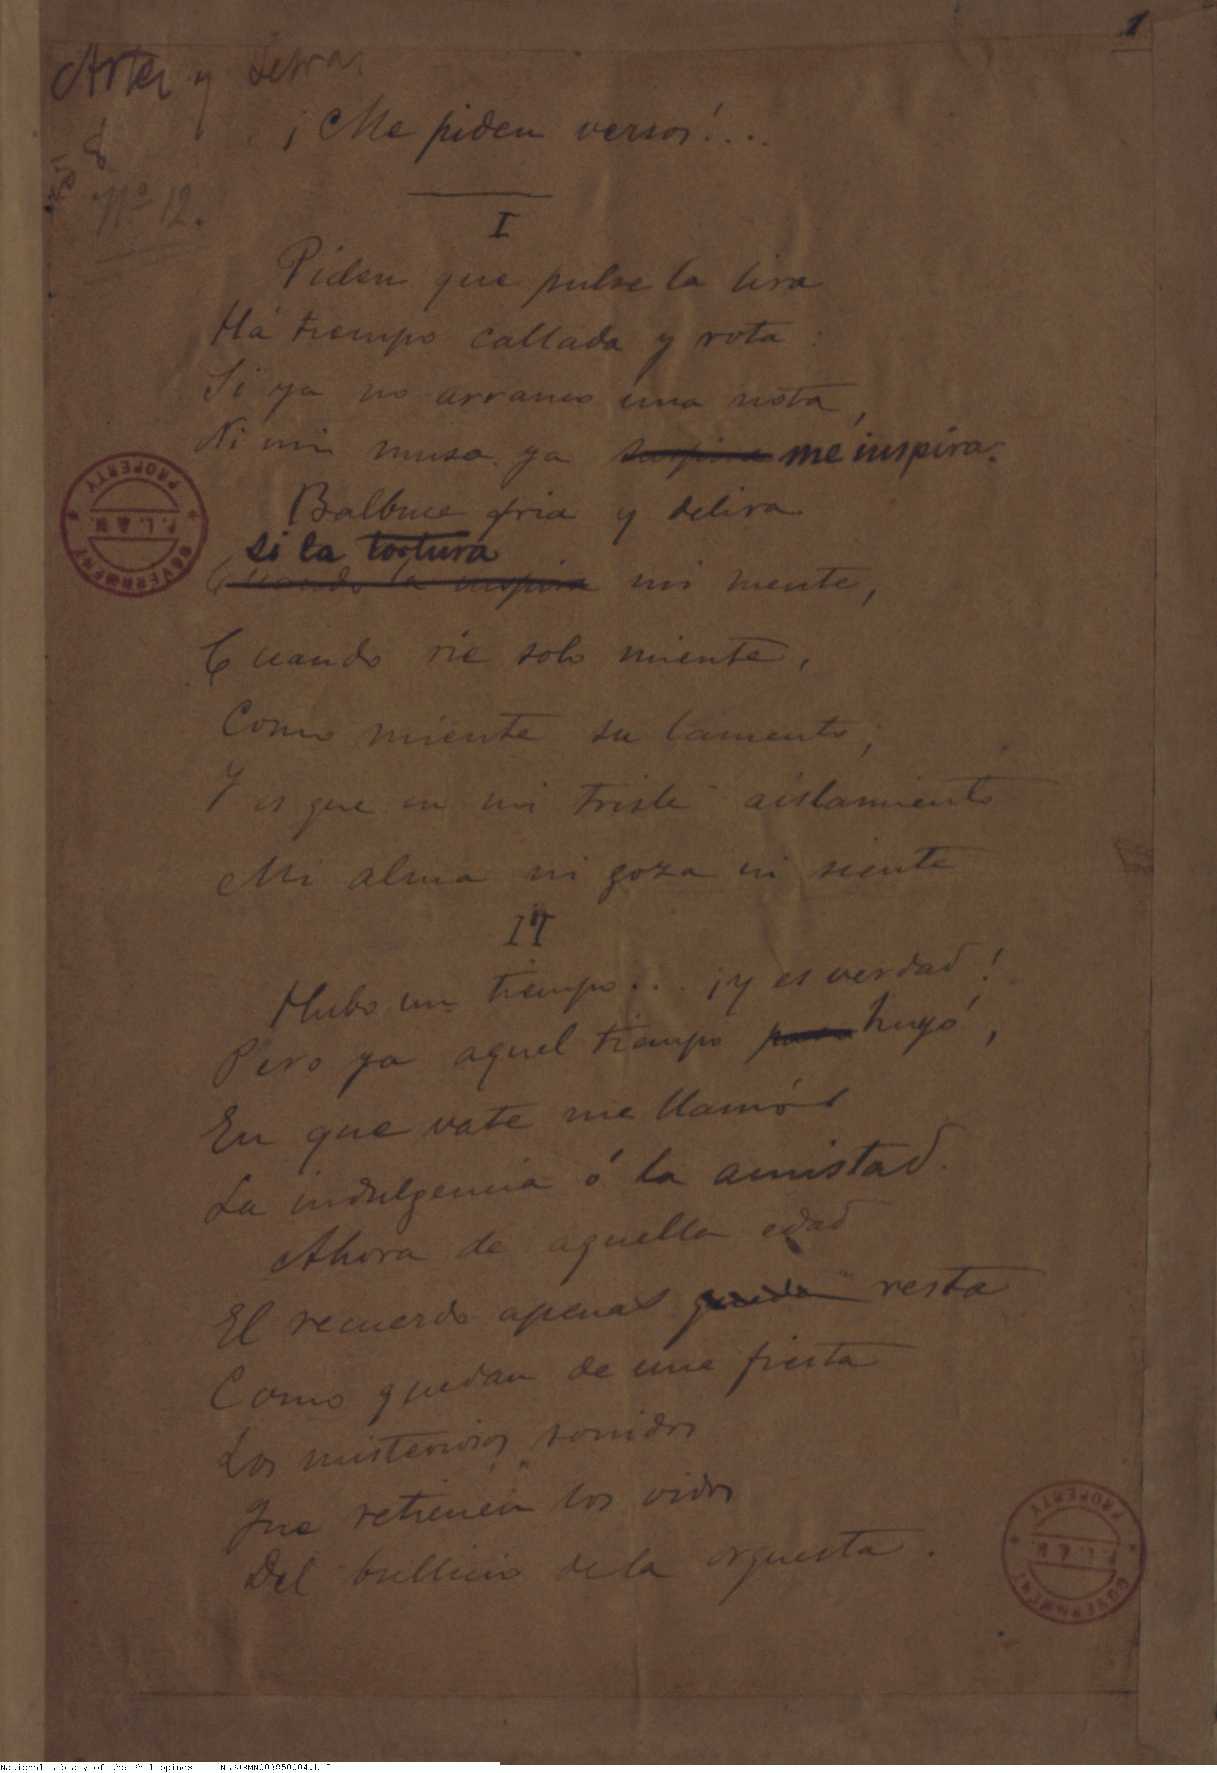 1
Artes y Letras
¡Me piden versos!...
8
Nº 12.
I
Piden que pulse la lira
Há tiempo callada y rota:
Si ya no arranco una nota,
Ni mi musa ya suspira me inspira.
Balbuce fria y delira
si la tortura
Cuando la inspira mi mente,
Cuando rie solo miente,
Como miente su lamento;
Y es que en mi triste aislamiento
Mi alma ni goza ni siente
II
Hubo un tiempo... ¡y es verdad!
Pero ya aquel tiempo huyó,
En que vate me llamó
La indulgencia ó la amistad.
Ahora de aquella edad
El recuerdo apenas queda resta
Como quedan de una fiesta
Los misteriosos sonidos
Que retienen los oidos
Del bullicio de la orquesta.
GOVERNMENT PROPERTY
P. L. & M.
GOVERNMENT PROPERTY
P. L. & M.
National Library of the Philippines